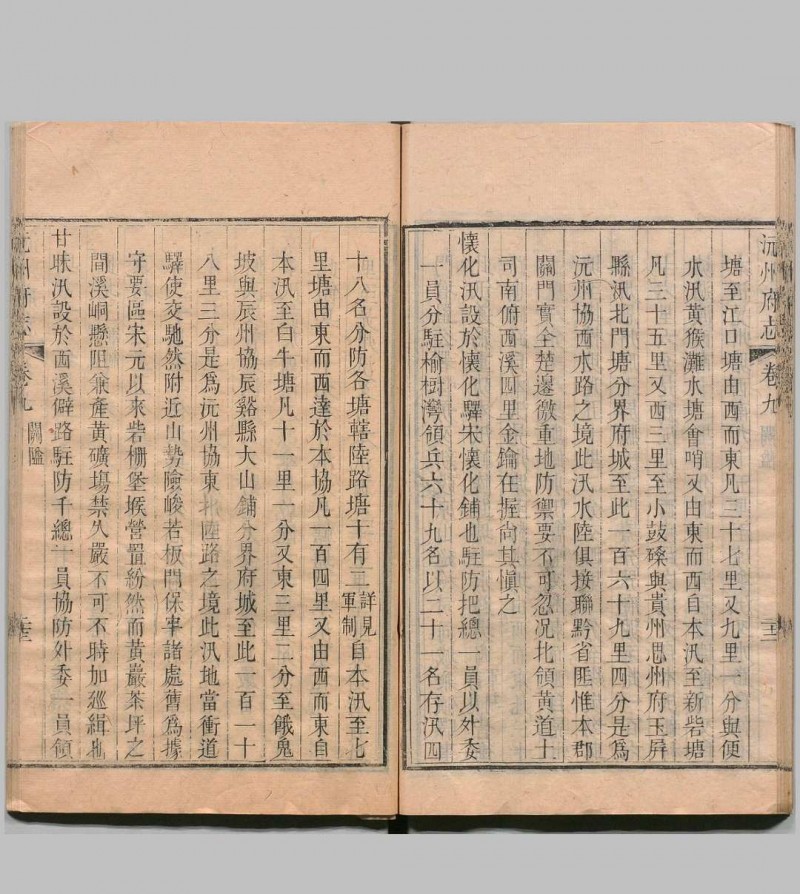 沅州府志 卷九 關隘 二十二
塘至江口塘由西而東凡三十七里又九里一分與便
水汛黃猴灘水塘會哨又由東而西自本汛至新砦塘
凡三十五里又西三里至小鼓磉與貴州思州府玉屏
縣汛北門塘分界府城至此一百六十九里四分是爲
沅州協西水路之境此汛水陸俱接聯黔省匪惟本郡
關門實全楚邊徼重地防禦要不可忽况北領黃道土
司南俯西溪四里金鑰在握尚其愼之
懷化汛設於懷化驛宋懷化鋪也駐防把總一員以外委
一員分駐榆樹灣領兵六十九名以二十一名存汛四
十八名分防各塘轄陸路塘十有二詳見軍制自本汛至七
里塘由東而西達於本協凡一百四里又由西而東自
本汛至白牛塘凡十一里一分又東三里二分至餓鬼
坡與辰州協辰谿縣大山鋪分界府城至此一百一十
八里三分是爲沅州協東北陸路之境此汛地當衝道
驛使交馳然附近山勢險峻若板門保宰諸處舊爲據
守要區宋元以來砦柵堡堠營置紛然而黃巖茶坪之
間溪峒懸阻兼產黃礦塲禁久嚴不可不時加廵緝也
甘味汛設於西溪僻路駐防千總一員協防外委一員領
沅州府志 卷九 關隘 二十三